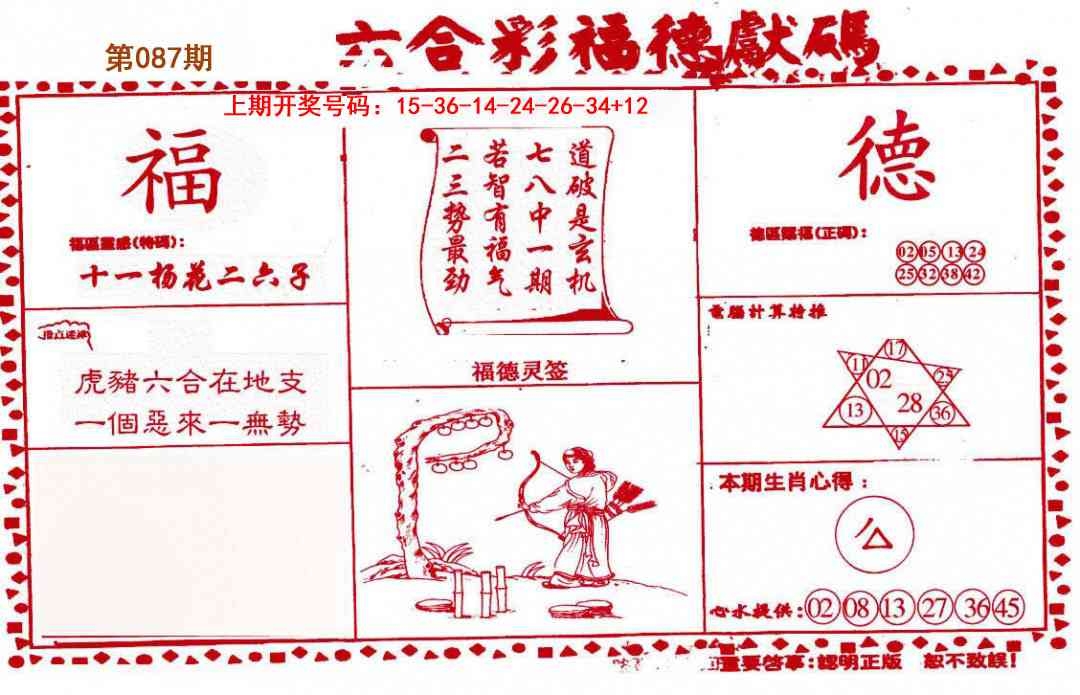 第087期
六合彩福德獻碼
上期开奖号码：15-36-14-24-26-34+12
福
福區靈感(特碼)：
十一杨花二六子
虎豬六合在地支
一個惡來一無勢
道破是玄机
七八中一期
若智有福气
二三势最劲
福德灵签
德
德區賜福(正碼)：
02 05 13 24
25 32 38 42
電腦計算特推
17
11
02
25
13
28
36
15
本期生肖心得：
心水提供：02 08 13 27 36 45
重要啓事：認明正版 恕不致誤！